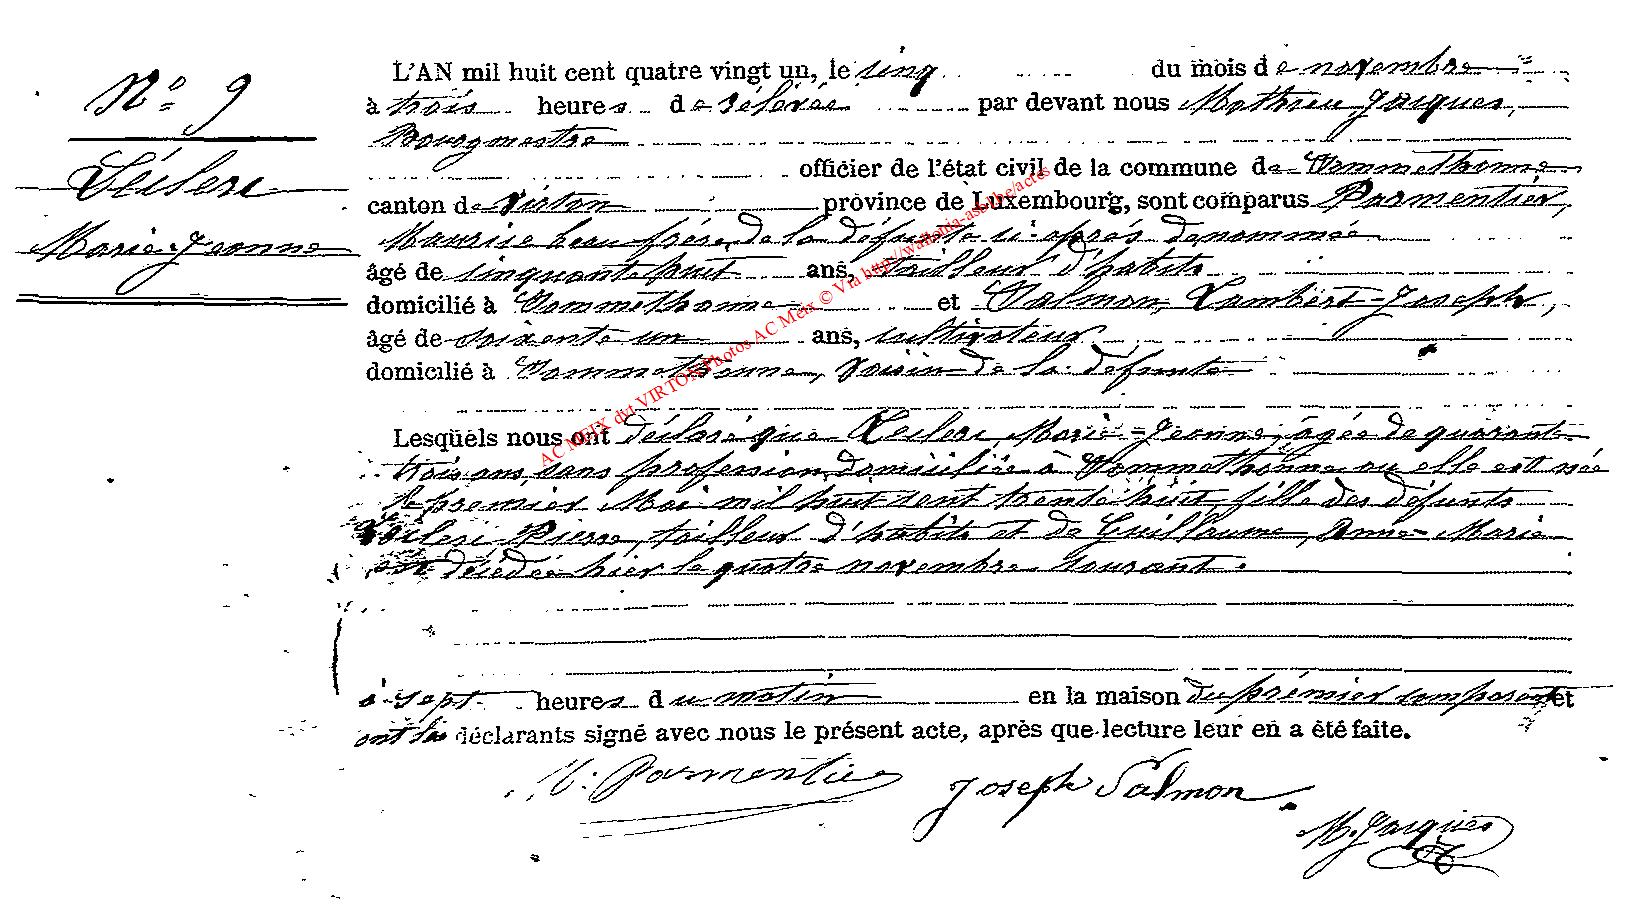 N° 9
Léclerc
Marie-Jeanne
L'AN mil huit cent quatre vingt un, le cinq du mois de novembre
à trois heures de rélévée par devant nous Mathieu Jacques,
Bourgmestre
officier de l'état civil de la commune de Sommethonne
canton de Virton province de Luxembourg, sont comparus Parmentier,
Maurice beau frère de la défunte ci-après dénommée
âgé de cinquante huit ans, tailleur d'habits
domicilié à Sommethonne et Salmon, Lambert-Joseph,
âgé de soixante un ans, cultivateur
domicilié à Sommethonne, voisin de la défunte
Lesquels nous ont déclaré que Leclerc, Marie-Jeanne, âgée de quarante
trois ans, sans profession, domiciliée à Sommethonne ou elle est née
le premier Mai mil huit cent trente huit, fille des défunts
Leclerc Pierre, tailleur d'habits et de Guillaume, Anne-Marie
est décédée hier le quatre novembre courant.
à sept heures du matin en la maison du prémier comparant et
ont les déclarants signé avec nous le présent acte, après que lecture leur en a été faite.
M. Parmentier Joseph Salmon
M. Jacques
AC MEIX dvt VIRTON Photos AC Meix © Via http://wallonia-asbl.be/actes